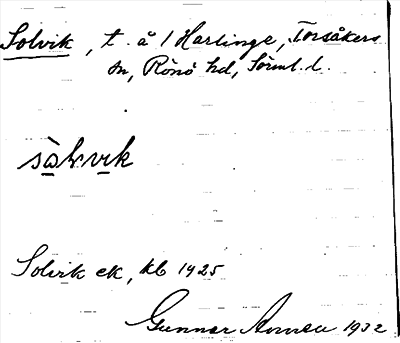 Solvik, t. å 1 Harlinge, Torsåkers
sn, Rönö hd, Sörml. l.
Solvik ek, kb 1925
Gunnar 1932